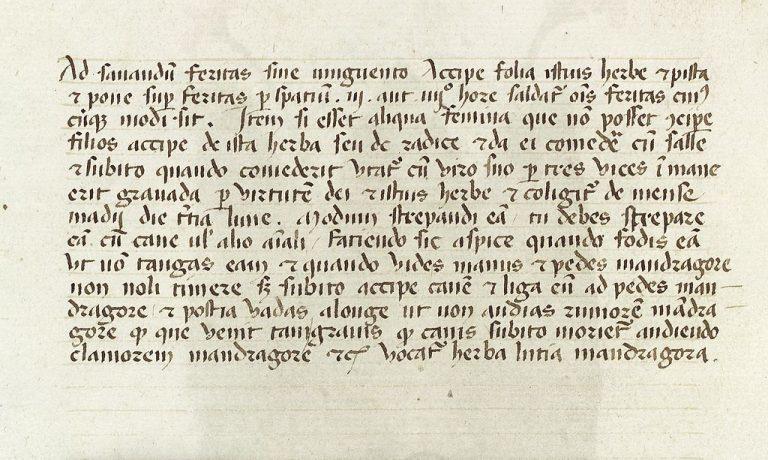 Ad sanandū feritas sine unguento Accipe folia istius herbe & pista
& pone sup̱ feritas ꝑ spatiū .iij. aut iiijͦ hore saldat᷑ oīs feritas cuiꝰ
cūqꝫ modi sit. Item si esset aliqua femina que nō posset ɔcipe
filios accipe de ista herba seu de radice & da ei comedē cū salse
& subito quando comederit utat᷑ cū viro suo ꝑ tres vices ī mane
erit gravada ꝑ virtutē dei & istius herbe & coligit᷑ de mense
madij die t̄tia lune. Modum strepandi eā tu debes strepare
eā cū cane ul᷑ alio aīali faciendo sic aspice quando fodis eā
ut nō tangas eam & quando vides manus & pedes mandragore
non noli timere sꝫ subito accipe canē & liga eū ad pedes man-
dragore & postea vadas alonge ut non audias rumorē mādra
gorē qꝫ que venit tam gravis qꝫ canis subito moriet᷑ audiendo
clamorem mandragorē &c̄ vocat᷑ herba mandragora.